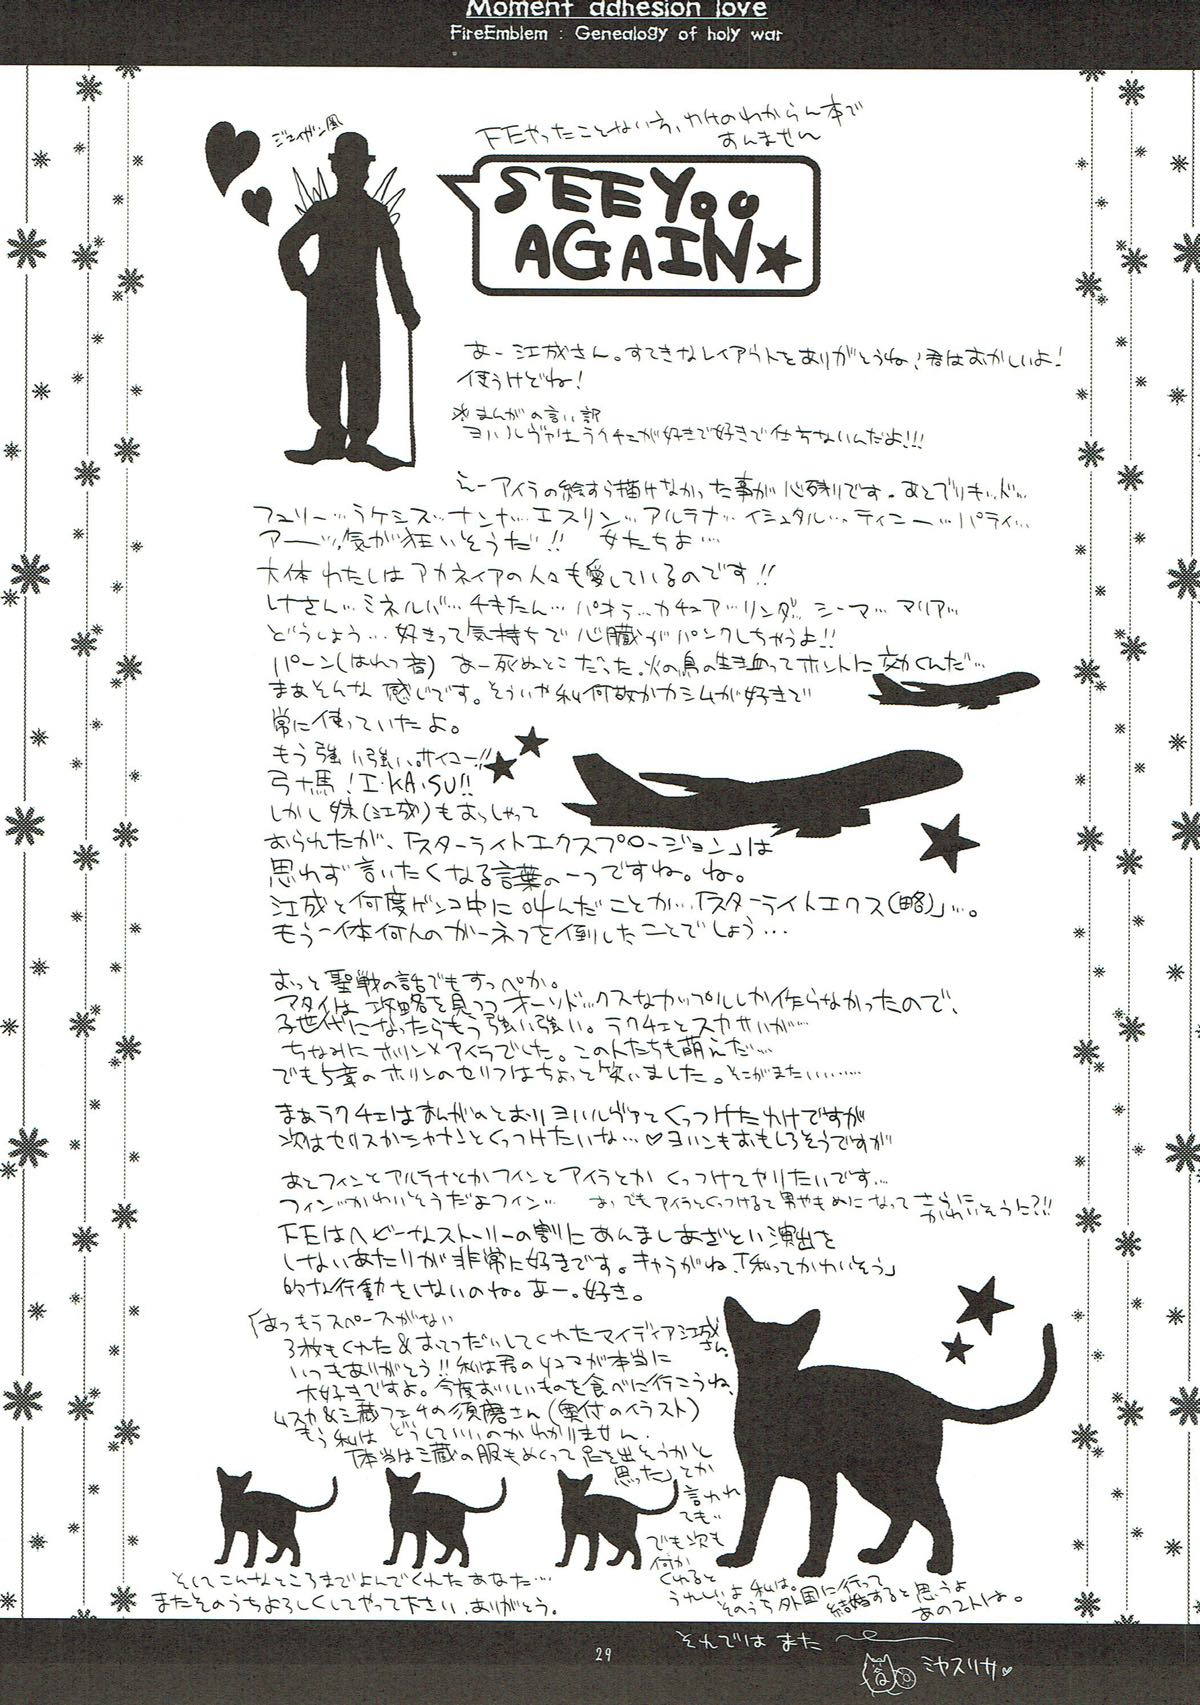 Moment adhesion love
FireEmblem : Genealogy of holy war
ジェイガン風
FEやったことない方、わけのわからん本で
あんません
SEE YOU
AGAIN
あー江成さん。すてきなレイアウトをありがとうね!君はおかしいよ!
使うけどね!
*まんがの言い訳
ヨハルヴァはラクチェが好きで好きで仕方ないんだよ!!!
えーアイラの絵すら描けなかった事が心残りです。あとブリギッド…
フュリー…ラケシス…ナンナ…エスリン…アルテナ…イシュタル…ティニー…パティ…
アーー…気が狂いそうだ!! 女たちよ…
大体わたしはアカネイアの人々も愛しているのです!!
レナさん…ミネルバ…チキたん…パオラ…カチュア…リンダ…シーマ…マリア…
どうしよう…好きって気持ちで心臓がパンクしちゃうよ!!
パーン(はれつ音) あー死ぬとこだった。火の鳥の生き血ってホントに効くんだ…
まあそんな感じです。そういや私何故かカシムが好きで
常に使っていたよ。
もう強い強い。サイコー!!
弓+馬!I・KA・SU!!
しかし妹(江成)もおっしゃって
おられたが、「スターライトエクスプロージョン」は
思わず言いたくなる言葉の一つですね。ね。
江成と何度ゲンコ中に叫んだことか…「スターライトエクス(略)」…。
もう一体何人のガーネフを倒したことでしょう…
おっと聖戦の話でもすっぺか。
アタイは攻略を見つつオーソドックスなカップルしか作らなかったので、
子世代になったらもう強い強い。ラクチェとスカサハが…
ちなみにホリン×アイラでした。この人たちも萌えだ…
でも5章のホリンのセリフはちょっと笑いました。そこがまたいい……
まぁラクチェはまんがのとおりヨハルヴァとくっつけたわけですが
次はセリスかシャナンとくっつけたいな…♡ヨハンもおもしろそうですが
あとフィンとアルテナとかフィンとアイラとかくっつけてやりたいです…
フィン…かわいそうだよフィン… あっでもアイラとくっつけると男やもめになってさらに
かわいそうに?!!
FEはヘビーなストーリーの割にあんましあざとい演出を
しないあたりが非常に好きです。キャラがね、「私ってかわいそう」
的な行動をしないのね。あー。好き。
はっもうスペースがない
3枚もくれた&おてつだいしてくれたマイディア江成
さん。
いつもありがとう!!私は君の4コマが本当に
大好きですよ。今度おいしいものを食べに行こうね。
ムスカ&三蔵フェチの須磨さん(奥付のイラスト)
もう私はどうしていいのかわかりません。
「本当は三蔵の服もめくって足を出そうかと
思った」とか
言われ
ても…
でも次も
何か
くれると
うれしいよ私は。
そのうち外国に行って
結婚すると思うよ
あの2トは。
そしてこんなところまでよんでくれたあなた…
またそのうちよろしくしてやって下さい。ありがとう。
そんではまた
ミヤスリサ♥
29